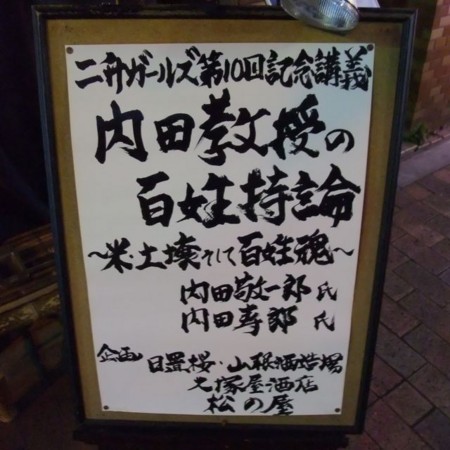 二舟ガールズ第10回記念講義
内田教授の
百姓持論
～米・土壌そして百姓魂～
内田敬一郎氏
内田寿郎氏
企画 日置桜・山根酒造場
大塚屋酒店
松の屋